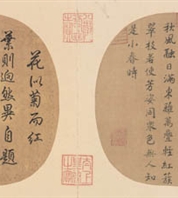 秋風融日滿東籬萬疊輕紅簇
翠枝若使芳姿同衆色無人知
是小春時
花似菊而紅
葉則迥然異自題